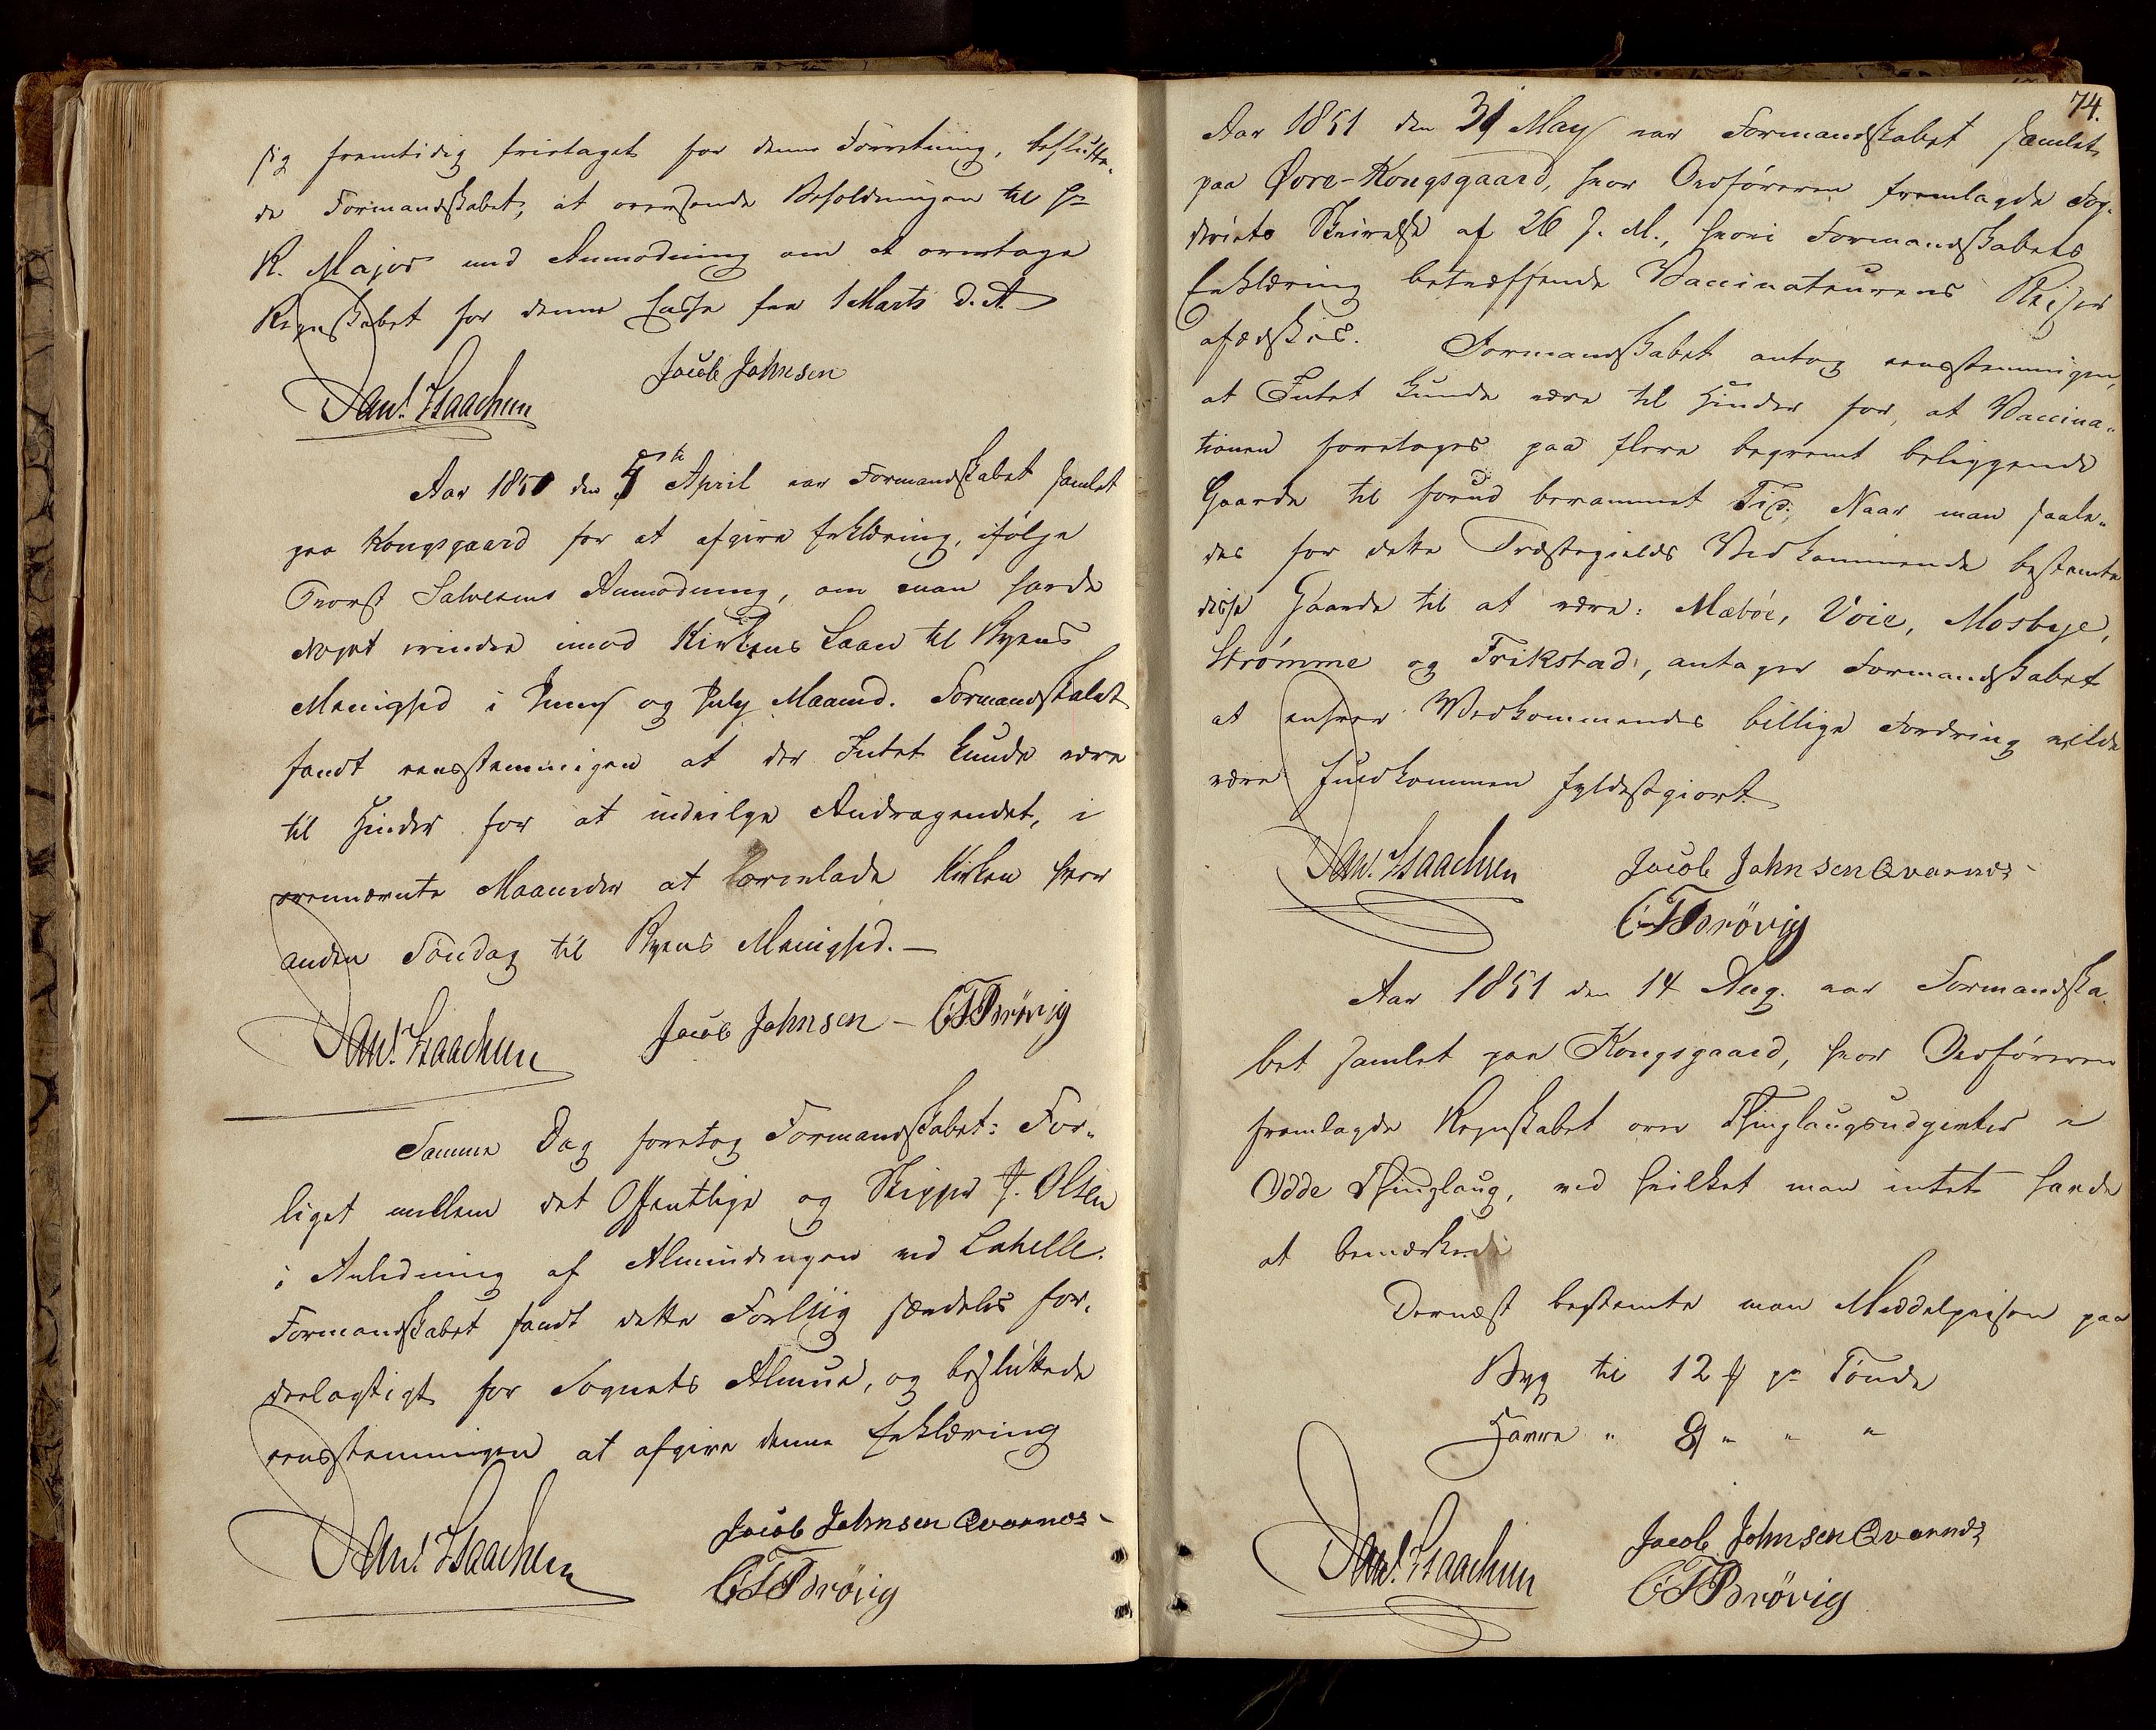 sig fremtidig fritaget for denne Forretning, beslutte-
de Formandskabet, at oversende Beholdningen til Hr
K. Major med Anmodning om at overtage
Regnskabet for denne Casse fra 1 Marts d. A.
Danl. Isaachsen Jacob Johnsen
Aar 1851 den 5te April var Formandskabet samlet
paa Kongsgaard for at afgive Erklæring, ifølge
Provst Salvesens Anmodning, om man havde
Noget mindre imod Kirkens Laan til Byens
Menighed i Juny og July Maaned. Formandskabet
fandt eensstemmigen at der Intet kunde være
til Hinder for at indvilge Andragendet, i
ovennævnte Maaneder at overlade Kirken hver
anden Søndag til Byens Menighed.—
Danl. Isaachsen Jacob Johnsen – CTBrövig
Samme Dag foretog Formandskabet: For-
liget mellem det Offentlige og Skipper J. Olsen
i Anledning af Almindingen ved Lahelle.
Formandskabet fandt dette Forliig særdeles for-
deelagtigt for Sognets Almue, og besluttede
eensstemmigen at afgive denne Erklæring
Danl. Isaachsen Jacob Johnsen Qvarnes-
CTBrövig
74.
Aar 1851 den 31 May var Formandskabet samlet
paa Øvre-Kongsgaard, hvor Ordføreren fremlagde Fog-
deriets Skrivelse af 26 f. M., hvori Formandskabets
Erklæring betræffende Vaccinateurens Reiser
afæskes. Formandskabet antog eensstemmigen,
at Intet kunde være til Hinder for, at Vaccina-
tionen foretages paa flere beqvemt beliggende
Gaarde til forud berammet Tid; Naar man saale-
des for dette Præstegields Vedkommende bestemte
disse Gaarde til at være: Mæbøe, Voie, Mosbye,
Strømme og Frikstad, antager Formandskabet
at enhver Vedkommendes billige Fordring vilde
være fuldkommen fyldestgiort.
Danl. Isaachsen Jacob Johnsen Qvarnes-
CTBrövig
Aar 1851 den 14 Aug. var Formandska-
bet samlet paa Kongsgaard, hvor Ordføreren
fremlagde Regnskabet over Thinglaugsudgivter i
Odde Thinglaug, ved hvilket man intet havde
at bemærke.
Dernæst bestemte man Middelprisen paa
Byg til 12 ƒ pr Tønde
Havre " 8 " " "
Danl. Isaachsen Jacob Johnsen Qvarnes
CTBrövig